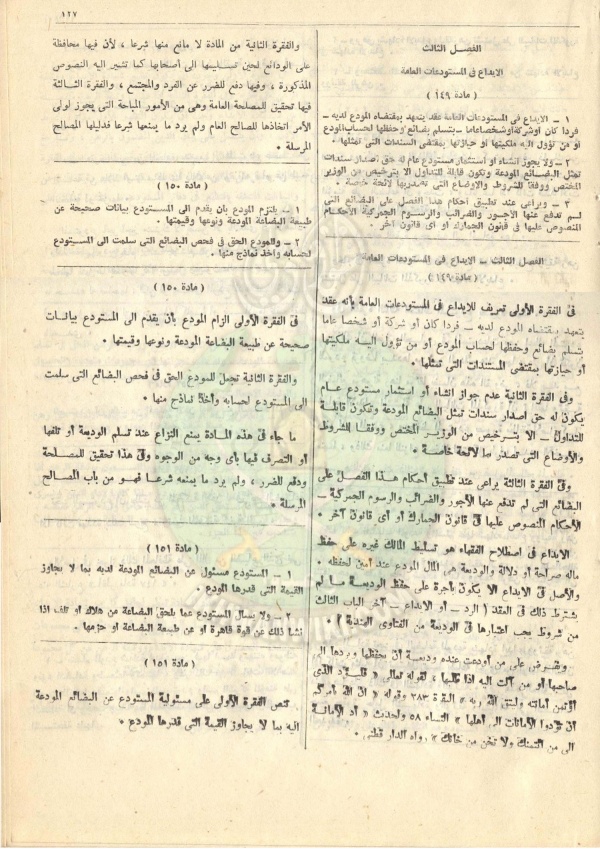 ١٢٧
الفصل الثالث
الايداع فى المستودعات العامة
( مادة ١٤٩ )
١ ــ الايداع فى المستودعات العامة عقد يتعهد بمقتضاه المودع لديه ــ
فردا كان أو شركة أو شخصا عاما ــ بتسلم بضائع وحفظها لحساب المودع
أو من تؤول اليه ملكيتها أو حيازتها بمقتضى السندات التى تمثلها ٠
٢ ــ ولا يجوز انشاء أو استثمار مستودع عام له حق اصدار سندات
تمثل البضائع المودعة وتكون قابلة للتداول الا بترخيص من الوزير
المختص ووفقا للشروط والأوضاع التى تصدر بها لائحة خاصة ٠
٣ ــ ويراعى عند تطبيق أحكام هذا الفصل على البضائع التى
لم تدفع عنها الأجور والضرائب والرسوم الجمركية الأحكام
المنصوص عليها فى قانون الجمارك أو أى قانون آخر ٠
الفصل الثالث ــ الايداع فى المستودعات العامة
( مادة ١٤٩ )
فى الفقرة الأولى تعريف للايداع فى المستودعات العامة بأنه عقد
يتعهد بمقتضاه المودع لديه ــ فردا كان أو شركة أو شخصا عاما
بتسلم بضائع وحفظها لحساب المودع أو من تؤول اليه ملكيتها
أو حيازتها بمقتضى المستندات التى تمثلها ٠
وفى الفقرة الثانية عدم جواز انشاء أو استثمار مستودع عام
يكون له حق اصدار سندات تمثل البضائع المودعة وتكون قابلة
للتداول ــ الا بترخيص من الوزير المختص ووفقا للشروط
والأوضاع التى تصدر بها لائحة خاصة ٠
وفى الفقرة الثالثة يراعى عند تطبيق أحكام هذا الفصل على
البضائع التى لم تدفع عنها الأجور والضرائب والرسوم الجمركية ــ
الأحكام المنصوص عليها فى قانون الجمارك أو أى قانون آخر ٠
الايداع فى اصطلاح الفقهاء هو تسليط المالك غيره على حفظ
ماله صراحة أو دلالة والوديعة هى المال المودع عند أمين لحفظه ٠
والأصل فى الايداع ألا يكون بأجرة على حفظ الوديعة ما لم
يشترط ذلك فى العقد ( الرد ــ أو الايداع ــ آخر الباب الثالث
من شروط يجب اعتبارها فى الوديعة من الفتاوى الهندية ) ٠
ويفترض على من أودعت عنده وديعة أن يحفظها ويردها الى
صاحبها أو من آلت اليه اذا طلبها ، لقوله تعالى « فليؤد الذى
اؤتمن أمانته وليتق الله ربه » البقرة ٢٨٣ وقوله « ان الله يأمركم
أن تؤدوا الأمانات الى أهلها » النساء ٥٨ ولحديث « أد الأمانة
الى من ائتمنك ولا تخن من خانك » رواه الدار قطنى ٠
والفقرة الثانية من المادة لا مانع منها شرعا ، لأن فيها محافظة
على الودائع لحين تسليمها الى أصحابها كما تشير اليه النصوص
المذكورة ، وفيها دفع للضرر عن الفرد والمجتمع ، والفقرة الثالثة
فيها تحقيق للمصلحة العامة وهى من الأمور المباحة التى يجوز لولى
الأمر اتخاذها للصالح العام ولم يرد ما يمنعها شرعا فدليلها المصالح
المرسلة ٠
( مادة ١٥٠ )
١ ــ يلتزم المودع بأن يقدم الى المستودع بيانات صحيحة عن
طبيعة البضاعة المودعة ونوعها وقيمتها ٠
٢ ــ وللمودع الحق فى فحص البضائع التى سلمت الى المستودع
لحسابه وأخذ نماذج منها ٠
( مادة ١٥٠ )
فى الفقرة الأولى الزام المودع بأن يقدم الى المستودع بيانات
صحيحة عن طبيعة البضاعة المودعة ونوعها وقيمتها ٠
والفقرة الثانية تجعل للمودع الحق فى فحص البضائع التى سلمت
الى المستودع لحسابه وأخذ نماذج منها ٠
ما جاء فى هذه المادة يمنع النزاع عند تسلم الوديعة أو تلفها
أو التصرف فيها بأى وجه من الوجوه وفى هذا تحقيق للمصلحة
ودفع للضرر ، ولم يرد ما يمنعه شرعا فهو من باب المصالح
المرسلة ٠
( مادة ١٥١ )
١ ــ المستودع مسئول عن البضائع المودعة لديه بما لا يجاوز
القيمة التى قدرها المودع ٠
٢ ــ ولا يسأل المستودع عما يلحق البضاعة من هلاك أو تلف اذا
نشأ ذلك عن قوة قاهرة أو عن طبيعة البضاعة أو حزمها ٠
( مادة ١٥١ )
تنص الفقرة الأولى على مسئولية المستودع عن البضائع المودعة
اليه بما لا يجاوز القيمة التى قدرها المودع ٠